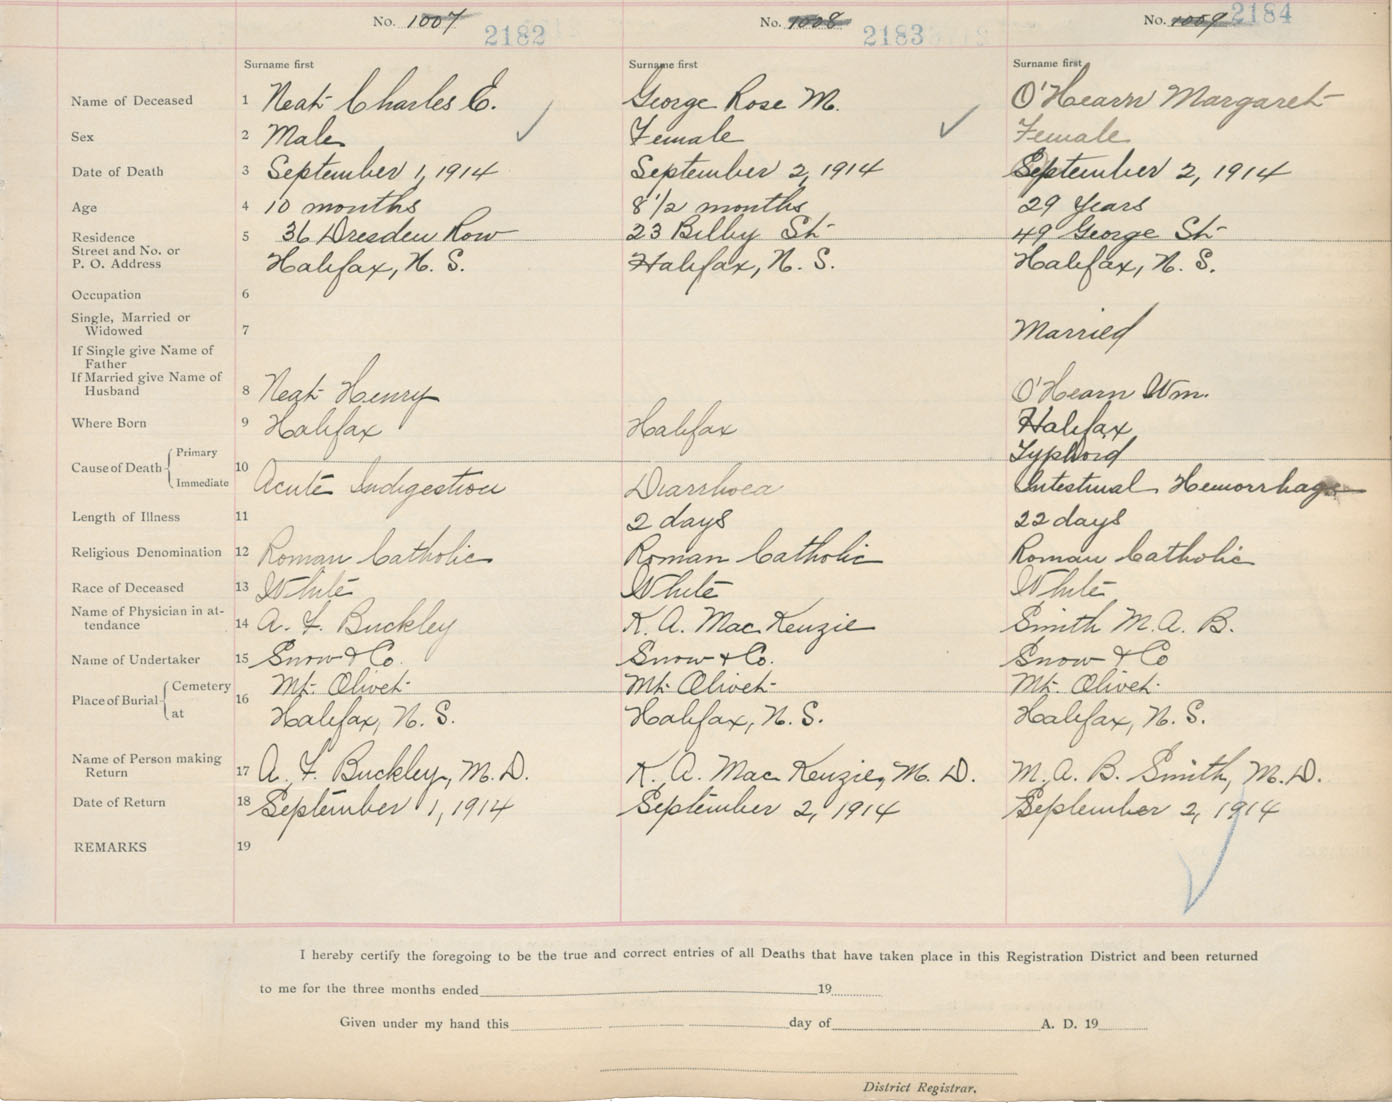 No. 1007 2182 No. 1008 2183 No. 1009 2184
Surname first Surname first Surname first
Name of Deceased 1 Neat Charles E. George Rose M. O'Hearn Margaret
Sex 2 Male Female Female
Date of Death 3 September 1, 1914 September 2, 1914 September 2, 1914
Age 4 10 months 8 1/2 months 29 Years
Residence 5 36 Dresden Row 23 Bilby St 49 George St
Street and No. or
P. O. Address Halifax, N. S. Halifax, N. S. Halifax, N. S.
Occupation 6
Single, Married or
Widowed 7 Married
If Single give Name of
Father
If Married give Name of
Husband 8 Neat Henry O'Hearn Wm.
Where Born 9 Halifax Halifax Halifax
Cause of Death Primary 10 Typhoid
Immediate Acute Indigestion Diarrhoea Intestinal Hemorrhage
Length of Illness 11 2 days 22 days
Religious Denomination 12 Roman Catholic Roman Catholic Roman Catholic
Race of Deceased 13 White White White
Name of Physician in at-
tendance 14 A. F. Buckley K. A. MacKenzie Smith M. A. B.
Name of Undertaker 15 Snow & Co. Snow & Co. Snow & Co
Place of Burial Cemetery 16 Mt. Olivet Mt. Olivet Mt. Olivet
at Halifax, N. S. Halifax, N. S. Halifax, N. S.
Name of Person making
Return 17 A. F. Buckley, M. D. K. A. MacKenzie, M. D. M. A. B. Smith, M. D.
Date of Return 18 September 1, 1914 September 2, 1914 September 2, 1914
REMARKS 19
I hereby certify the foregoing to be the true and correct entries of all Deaths that have taken place in this Registration District and been returned
to me for the three months ended 19
Given under my hand this day of A. D. 19
District Registrar.